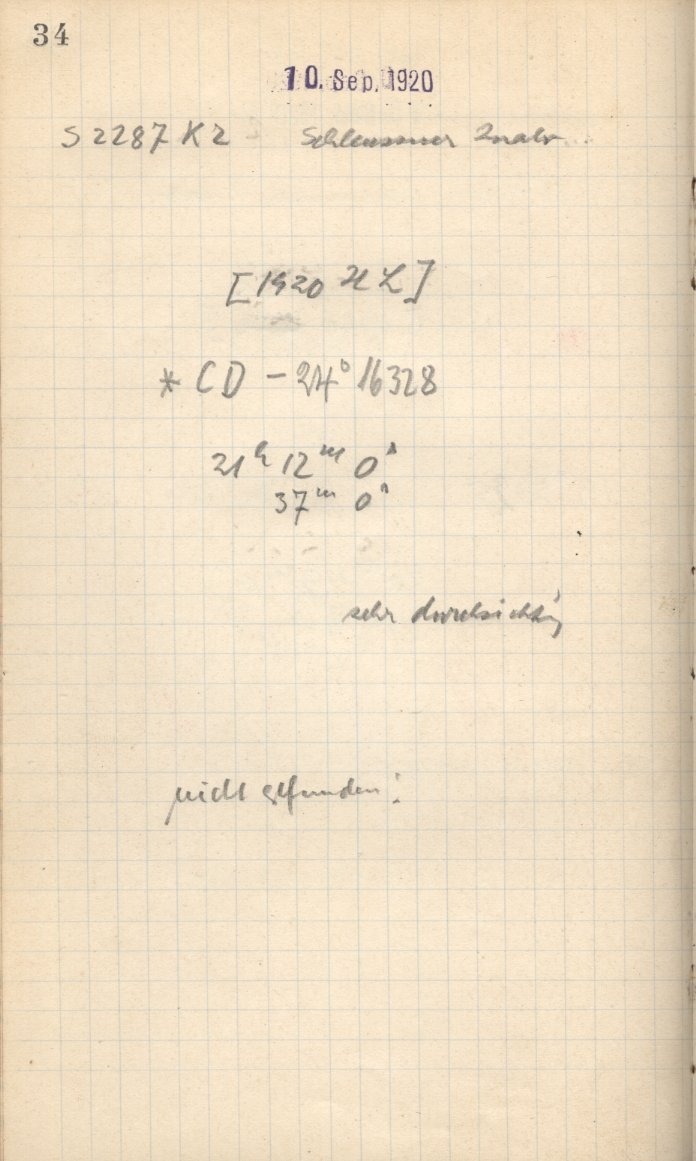 34
10. Sep. 1920
S 2287 K 2 Schleussner
[1920 HZ]
* CD − 24° 16328
21ʰ 12ᵐ 0ˢ
37ᵐ 0ˢ
sehr durchsichtig
nicht gefunden!